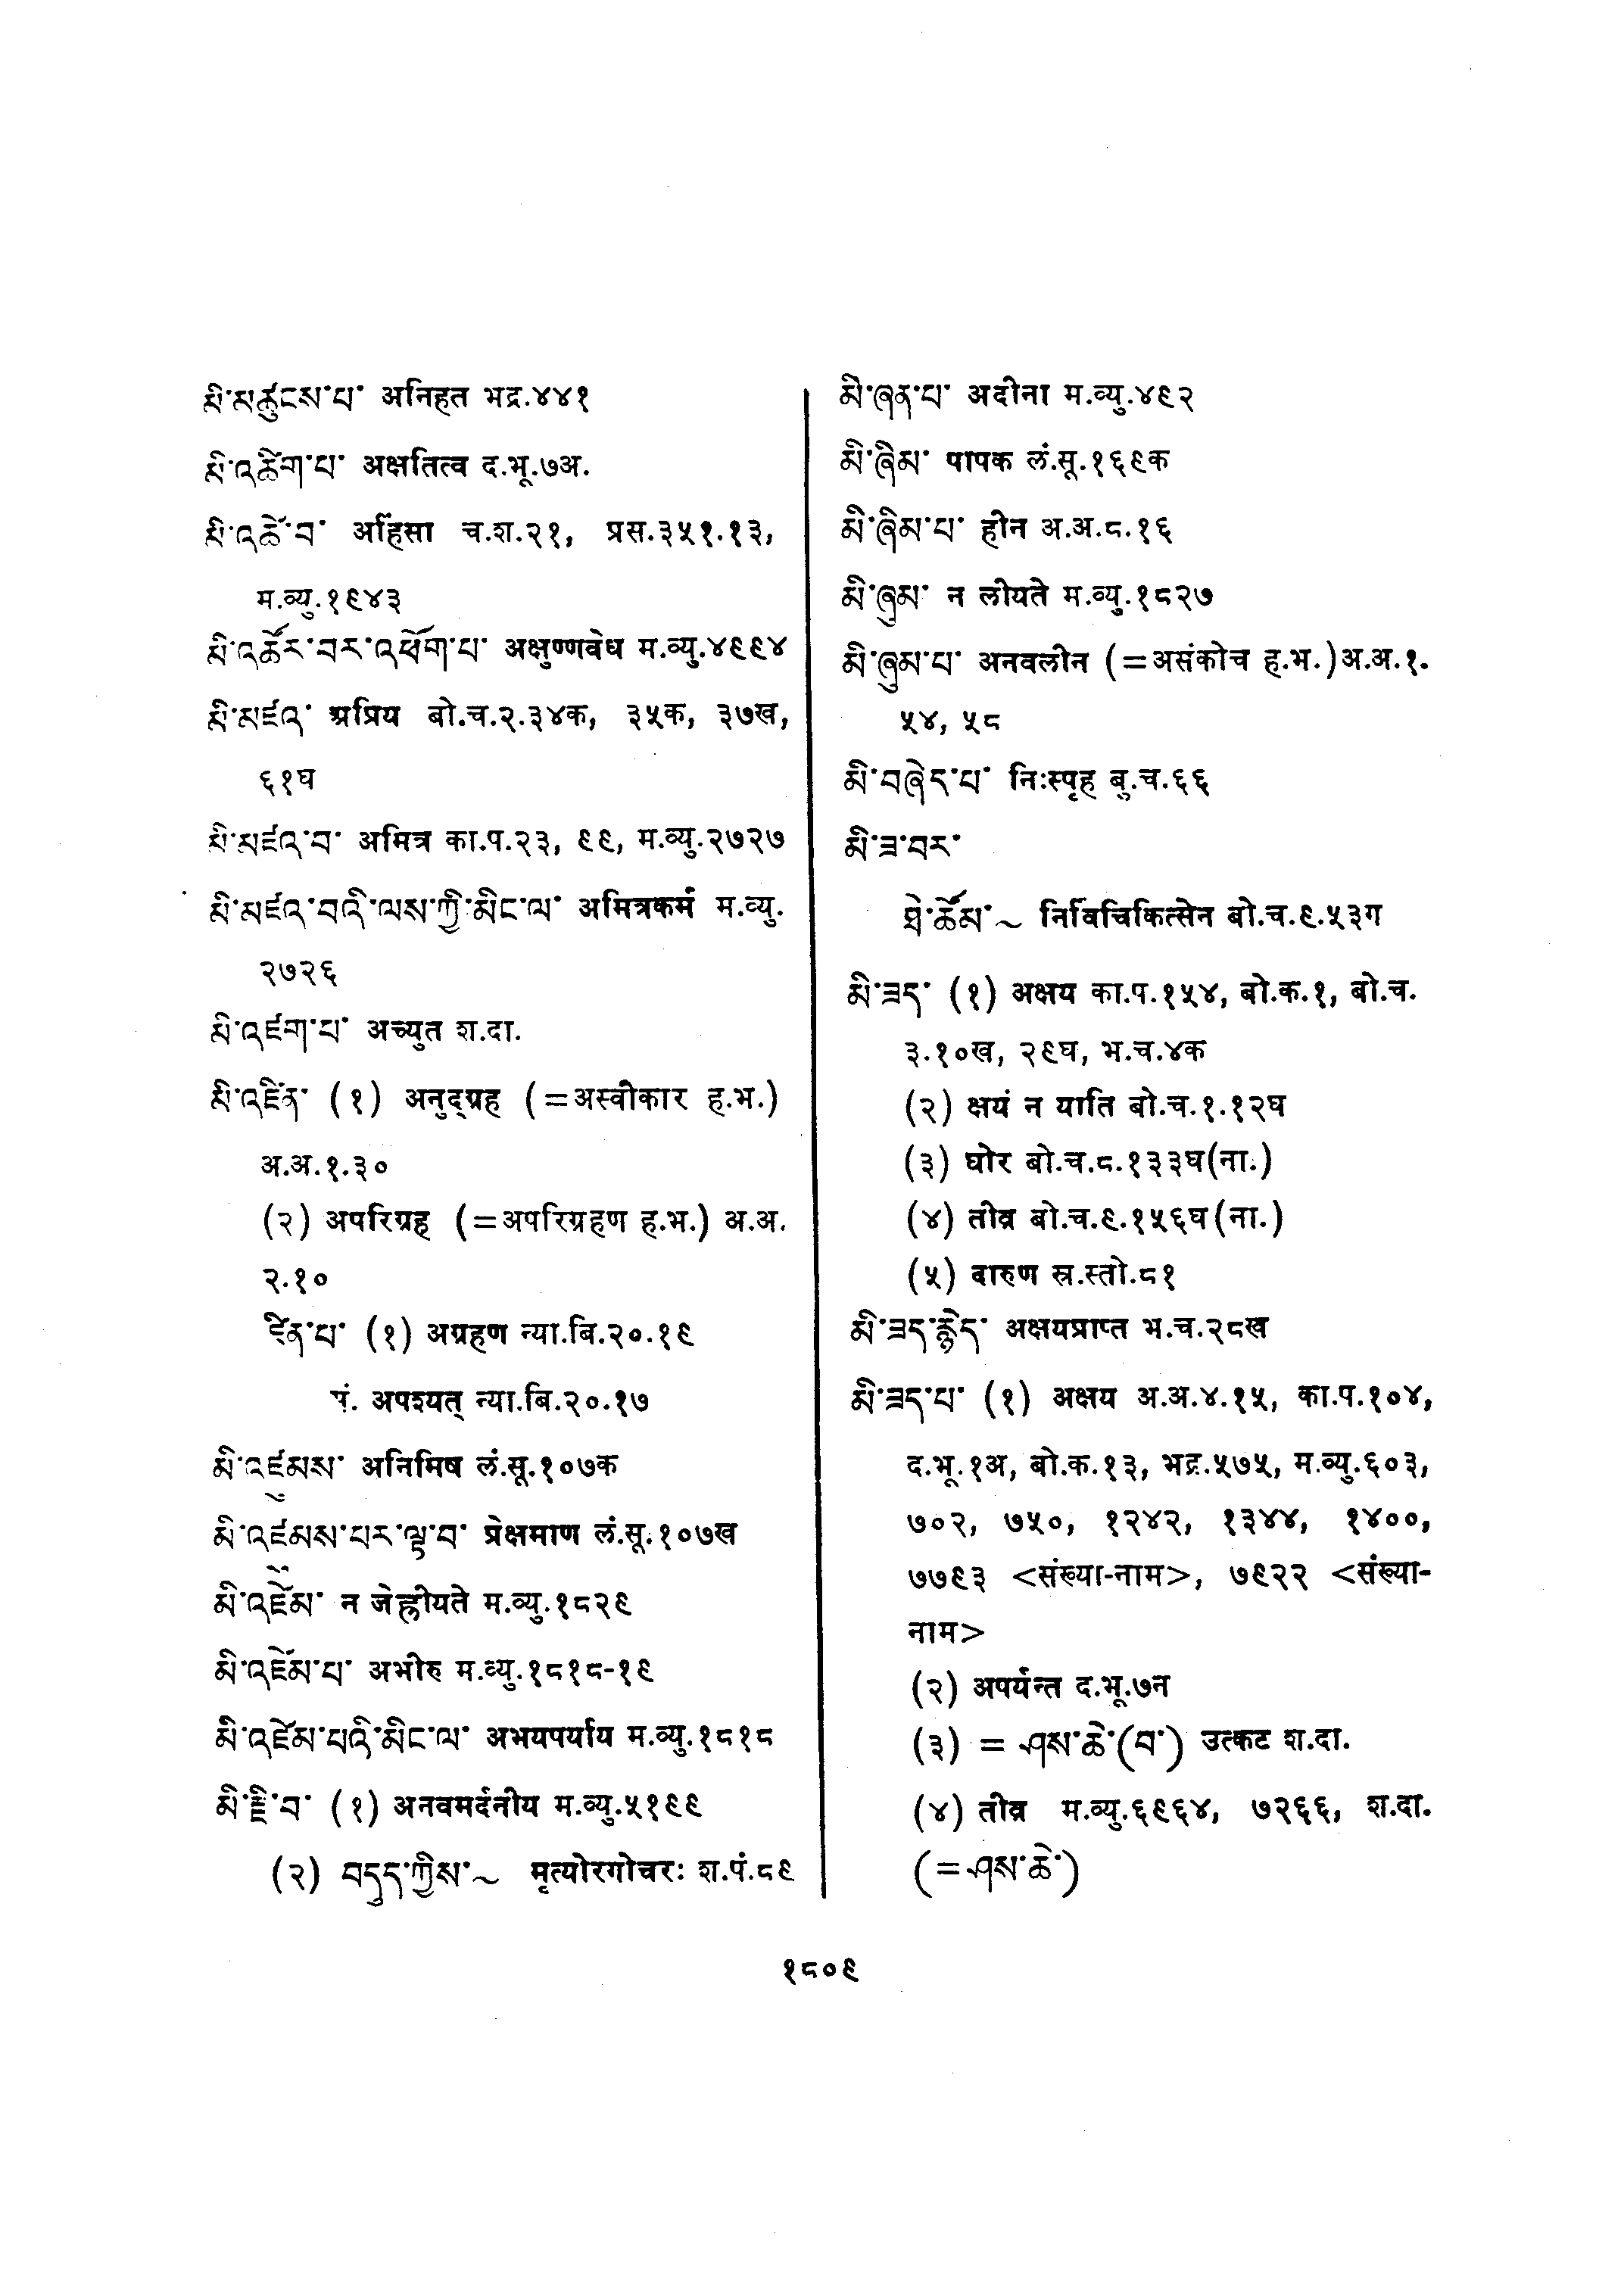 མི་མཚུངས་པ་ अनिहत भद्र.४४१
མི་འཚིག་པ་ अक्षतित्व द.भू.७अ.
མི་འཚེ་བ་ अहिंसा च.श.२१, प्रस.३५१.१३,
म.व्यु.१९४३
མི་འཚོར་བར་འཕོག་པ་ अक्षुण्णवेध म.व्यु.४९९४
མི་མཛའ་ अप्रिय बो.च.२.३४क, ३५क, ३७ख,
६१घ
མི་མཛའ་བ་ अमित्र का.प.२३, ९९, म.व्यु.२७२७
མི་མཛའ་བའི་ལས་ཀྱི་མིང་ལ་ अमित्रकर्म म.व्यु.
२७२६
མི་འཛག་པ་ अच्युत श.दा.
མི་འཛིན་ (१) अनुद्ग्रह (=अस्वीकार ह.भ.)
अ.अ.१.३०
(२) अपरिग्रह (=अपरिग्रहण ह.भ.) अ.अ.
२.१०
ཛིན་པ་ (१) अग्रहण न्या.बि.२०.१९
पं. अपश्यत् न्या.बि.२०.१७
མི་འཛུམས་ अनिमिष लं.सू.१०७क
མི་འཛུམས་པར་ལྟ་བ་ प्रेक्षमाण लं.सू.१०७ख
མི་འཛེམ་ न जेह्रीयते म.व्यु.१८२९
མི་འཛེམ་པ་ अभीरु म.व्यु.१८१८-१९
མི་འཛེམ་པའི་མིང་ལ་ अभयपर्याय म.व्यु.१८१८
མི་རྫི་བ་ (१) अनवमर्दनीय म.व्यु.५१९९
(२) བདུད་ཀྱིས་~ मृत्योरगोचरः श.पं.८९
མི་ཞན་པ་ अदीना म.व्यु.४९२
མི་ཞིམ་ पापक लं.सू.१६९क
མི་ཞིམ་པ་ हीन अ.अ.८.१६
མི་ཞུམ་ न लीयते म.व्यु.१८२७
མི་ཞུམ་པ་ अनवलीन (=असंकोच ह.भ.)अ.अ.१.
५४, ५८
མི་བཞེད་པ་ निःस्पृह बु.च.६६
མི་ཟ་བར་
ཐེ་ཚོམ་~ निर्विचिकित्सेन बो.च.९.५३ग
མི་ཟད་ (१) अक्षय का.प.१५४, बो.क.१, बो.च.
३.१०ख, २९घ, भ.च.४क
(२) क्षयं न याति बो.च.१.१२घ
(३) घोर बो.च.८.१३३घ(ना.)
(४) तीव्र बो.च.९.१५६घ(ना.)
(५) दारुण स्र.स्तो.८१
མི་ཟད་རྙེད་ अक्षयप्राप्त भ.च.२८ख
མི་ཟད་པ་ (१) अक्षय अ.अ.४.१५, का.प.१०४,
द.भू.१अ, बो.क.१३, भद्र.५७५, म.व्यु.६०३,
७०२, ७५०, १२४२, १३४४, १४००,
७७९३ <संख्या-नाम>, ७९२२ <संख्या-
नाम>
(२) अपर्यन्त द.भू.७न
(३) = ཤས་ཆེ་(བ་) उत्कट श.दा.
(४) तीव्र म.व्यु.६९६४, ७२६६, श.दा.
(=ཤས་ཆེ་)
१८०९